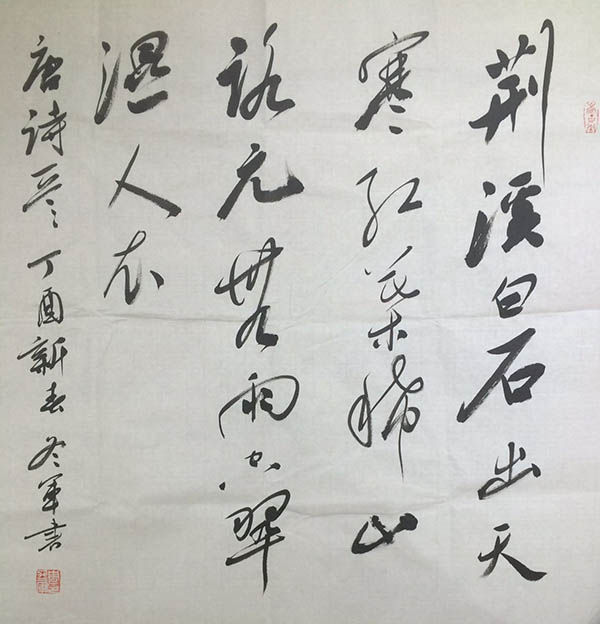 荆溪白石出天
寒红葉稀山
路元無雨空翠
湿人衣
唐诗一首 丁酉新春 冬军书